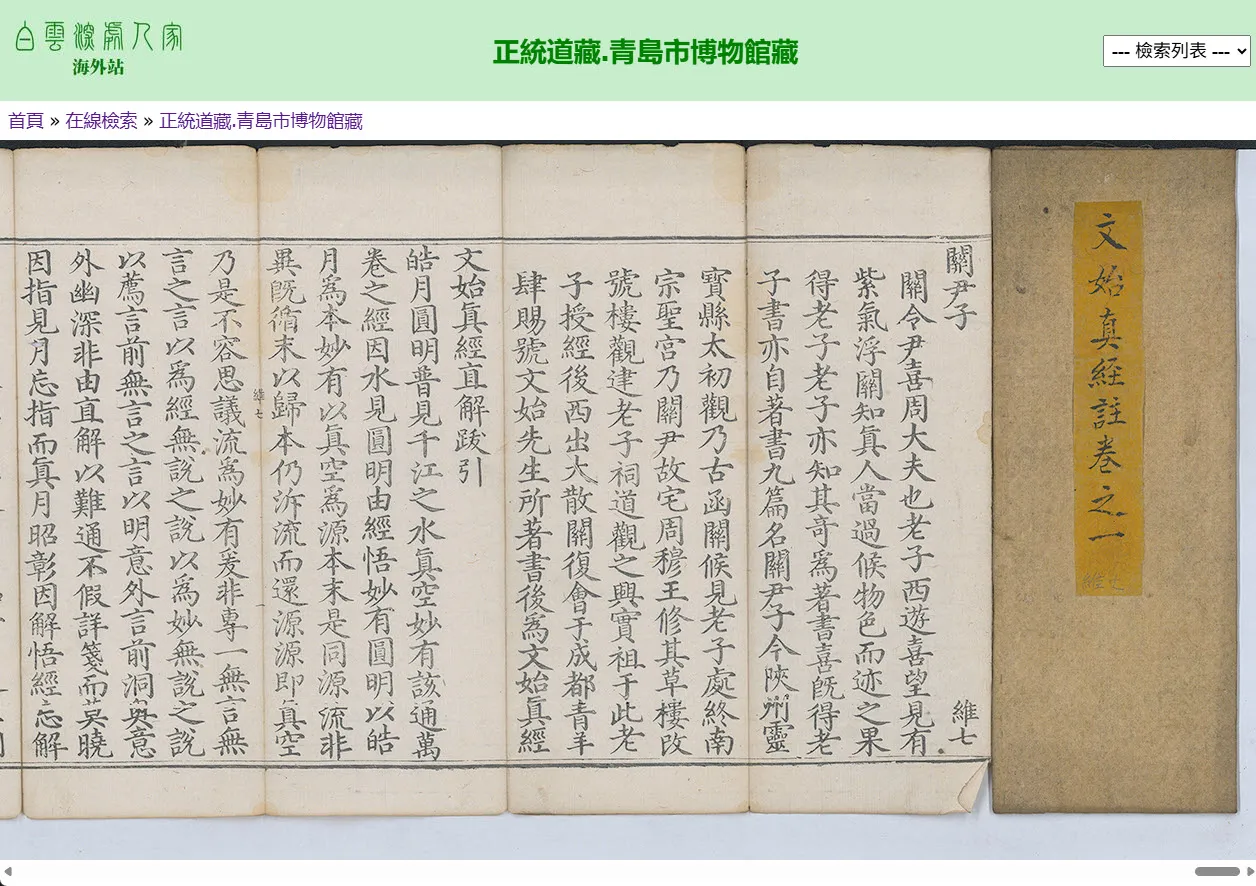 白雲深處人家
海外站
正統道藏.青島市博物館藏
--- 檢索列表 ---
首頁 » 在線檢索 » 正統道藏.青島市博物館藏
文始真經註卷之一
維七
關尹子
維七
關令尹喜周大夫也老子西遊喜望見有
紫氣浮關知眞人當過候物色而迹之果
得老子老子亦知其奇爲著書喜旣得老
子書亦自著書九篇名關尹子今陝州靈
寶縣太初觀乃古函關候見老子處終南
宗聖宮乃關尹故宅周穆王修其草樓改
號樓觀建老子祠道觀之興實祖于此老
子授經後西出大散關復會于成都青羊
肆賜號文始先生所著書後爲文始眞經
文始眞經直解跋引
皓月圓明普見千江之水眞空妙有該通萬
卷之經因水見圓明由經悟妙有圓明以皓
月爲本妙有以眞空爲源本末是同源流非
異旣循末以歸本仍泝流而還源源即眞空
維七
乃是不容思議流爲妙有爰非專一無言無
言之言以爲經無說之說以爲妙無說之說
以薦言前無言之言以明意外言前洞奧意
外幽深非由直解以難通不假詳箋而莫曉
因指見月忘指而眞月昭彰因解悟經忘解